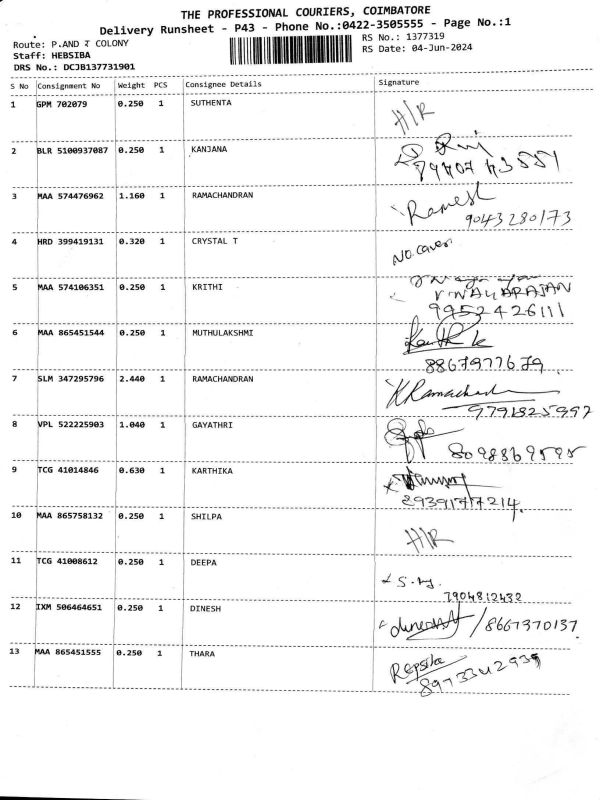 THE PROFESSIONAL COURIERS, COIMBATORE
Delivery Runsheet - P43 - Phone No.:0422-3505555 - Page No.:1
Route: P.AND T COLONY
RS No.: 1377319
Staff: HEBSIBA
RS Date: 04-Jun-2024
DRS No.: DCJB137731901
S No Consignment No Weight PCS Consignee Details Signature
1 GPM 702079 0.250 1 SUTHENTA H/R
2 BLR 5100937087 0.250 1 KANJANA
3 MAA 574476962 1.160 1 RAMACHANDRAN Ramesh
9043280173
4 HRD 399419131 0.320 1 CRYSTAL T NO cover
5 MAA 574106351 0.250 1 KRITHI
VINAYARAJAN
9952426111
6 MAA 865451544 0.250 1 MUTHULAKSHMI
8867977679
7 SLM 347295796 2.440 1 RAMACHANDRAN K.Ramachandran
9791825997
8 VPL 522225903 1.040 1 GAYATHRI
8098869595
9 TCG 41014846 0.630 1 KARTHIKA
10 MAA 865758132 0.250 1 SHILPA H/R
11 TCG 41008612 0.250 1 DEEPA
7904812432
12 IXM 506464651 0.250 1 DINESH dinesh /8667370137
13 MAA 865451555 0.250 1 THARA Repsiba
8973342939